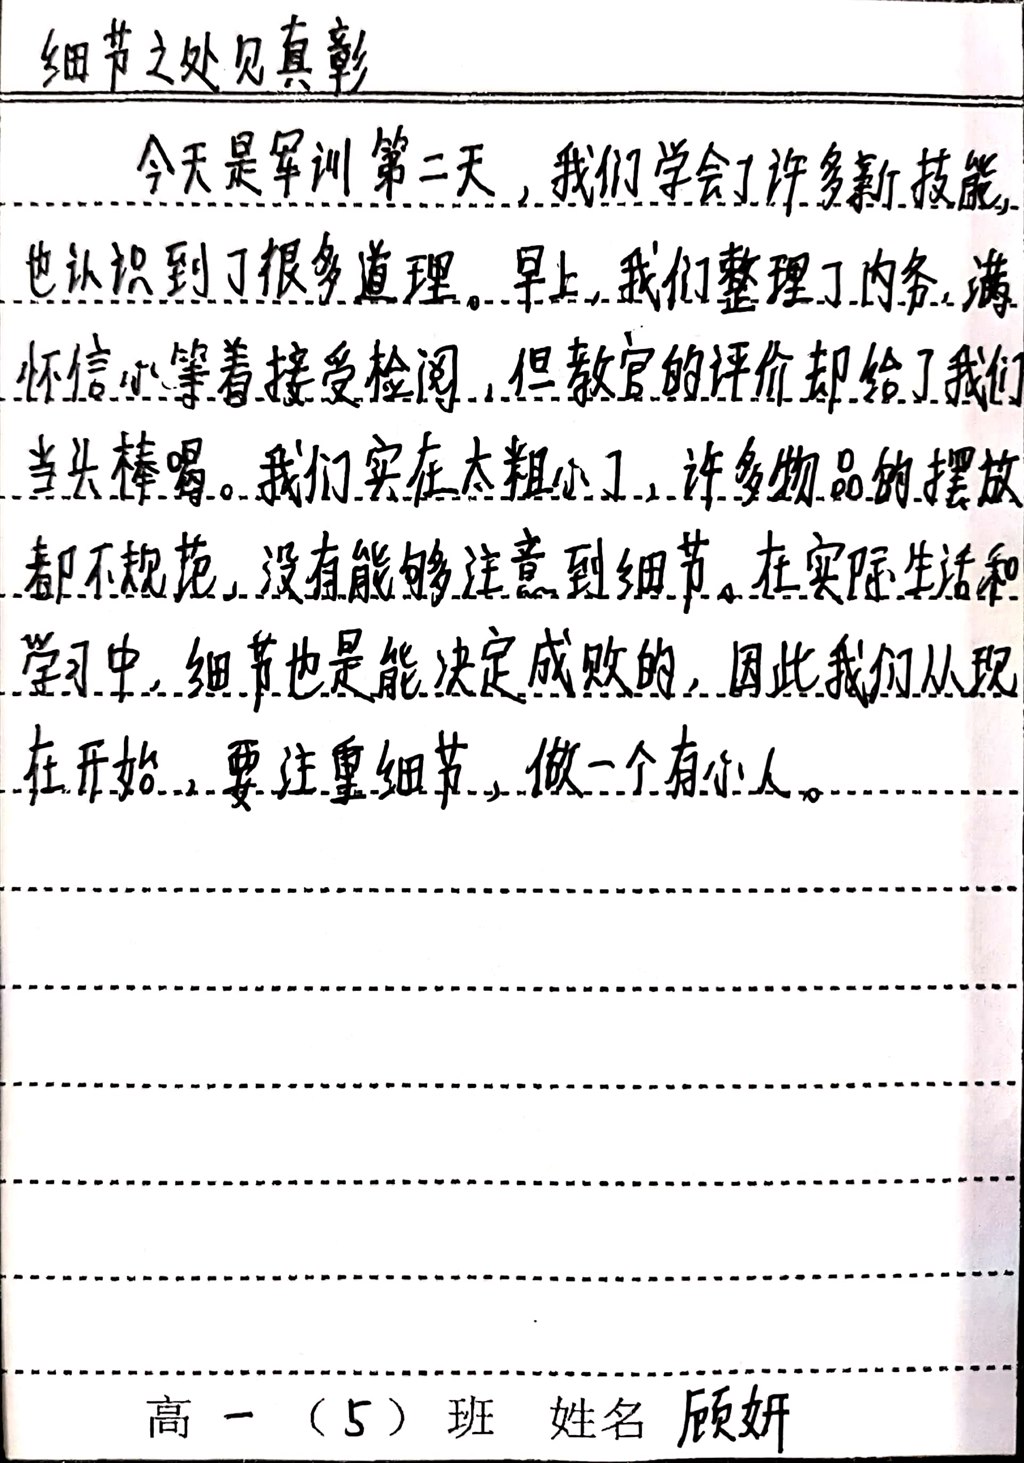 细节之处见真彰
今天是军训第二天，我们学会了许多新技能，
也认识到了很多道理。早上，我们整理了内务，满
怀信心等着接受检阅，但教官的评价却给了我们
当头棒喝。我们实在太粗心了，许多物品的摆放
都不规范，没有能够注意到细节。在实际生活和
学习中，细节也是能决定成败的，因此我们从现
在开始，要注重细节，做一个有心人。
高一（5）班 姓名 顾妍